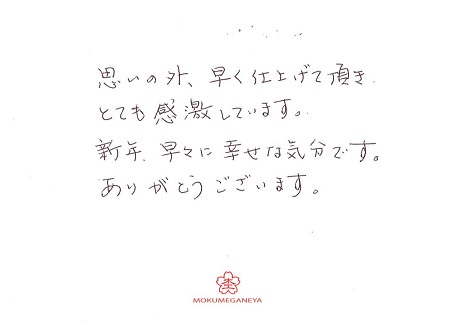 思いの外、早く仕上げて頂き
とても感激しています。
新年、早々に幸せな気分です。
ありがとうございます。
MOKUMEGANEYA